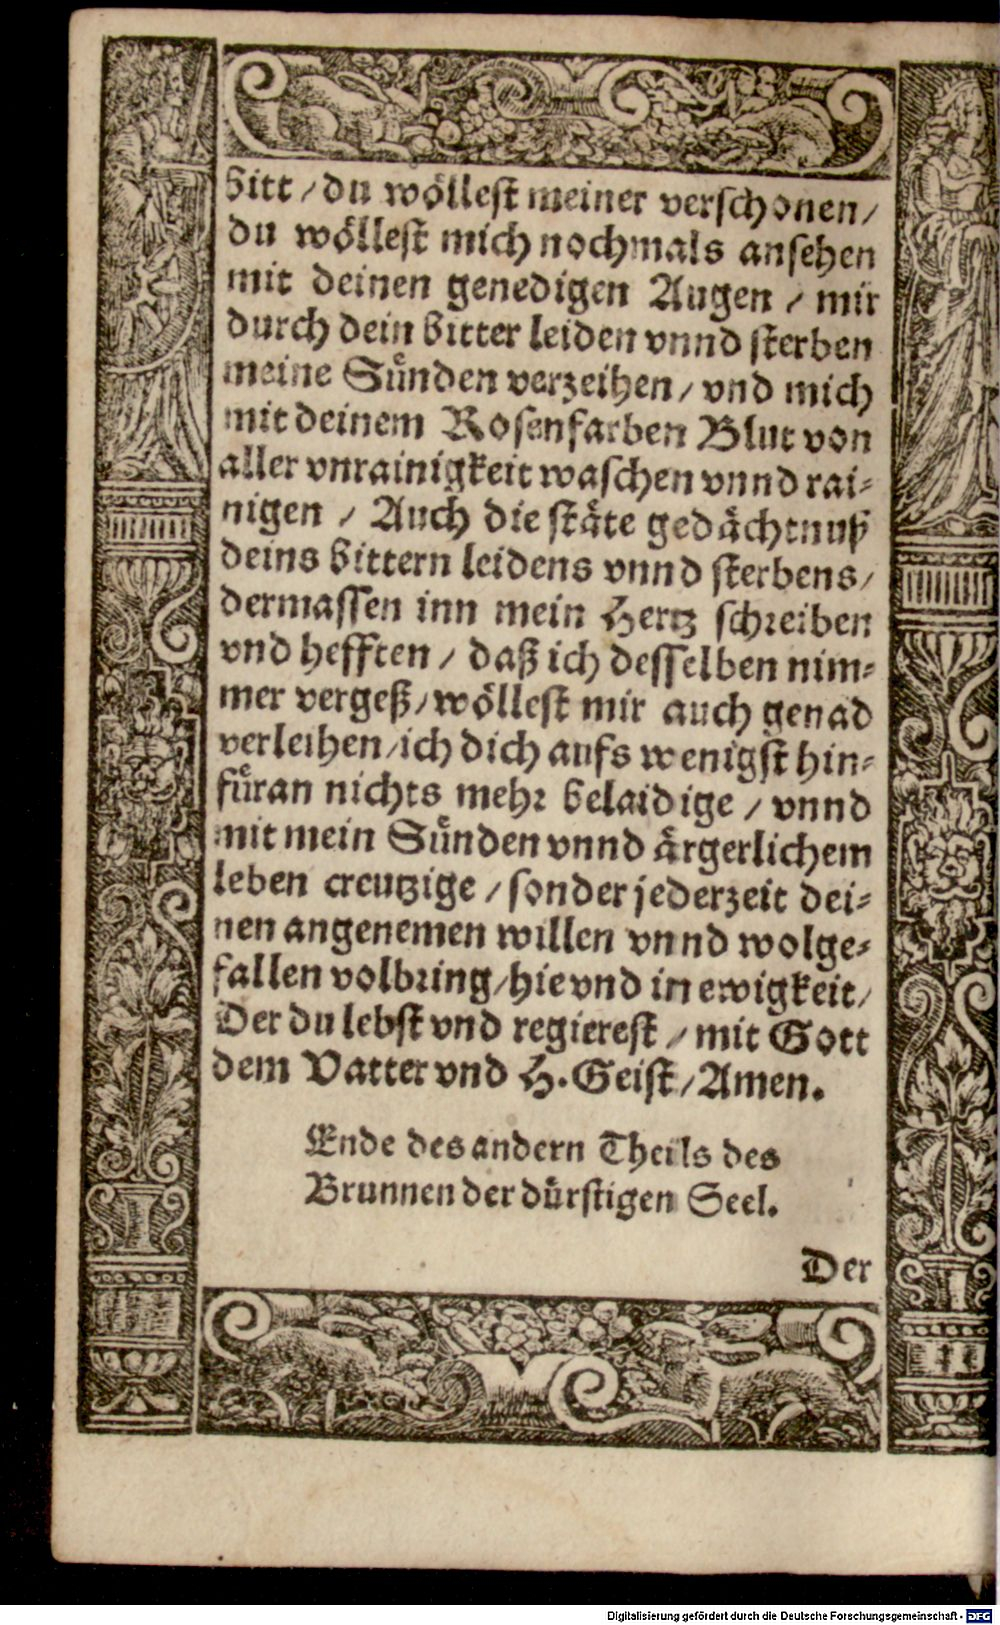 bitt / du wöllest meiner verschonen /
du wöllest mich nochmals ansehen
mit deinen genedigen Augen / mir
durch dein bitter leiden vnnd sterben
meine Sünden verzeihen / vnd mich
mit deinem Rosenfarben Blut von
aller vnrainigkeit waschen vnnd rai⸗
nigen / Auch die stäte gedächtnuß
deins bittern leidens vnnd sterbens /
dermassen inn mein Hertz schreiben
vnd hefften / daß ich desselben nim⸗
mer vergeß / wöllest mir auch genad
verleihen / ich dich aufs wenigst hin⸗
füran nichts mehr belaidige / vnnd
mit mein Sünden vnnd ärgerlichem
leben creutzige / sonder jederzeit dei⸗
nen angenemen willen vnnd wolge⸗
fallen volbring / hie vnd in ewigkeit /
Der du lebst vnd regierest / mit Gott
dem Vatter vnd H. Geist / Amen.
Ende des andern Theils des
Brunnen der dürstigen Seel.
Der
Digitalisierung gefördert durch die Deutsche Forschungsgemeinschaft - DFG